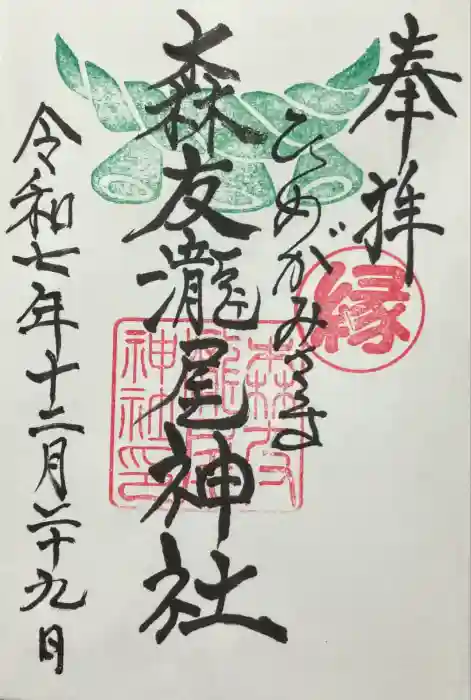 奉拝
縁
ひめがみさま
森友瀧尾神社
森友瀧尾神社印
令和七年十二月二十九日